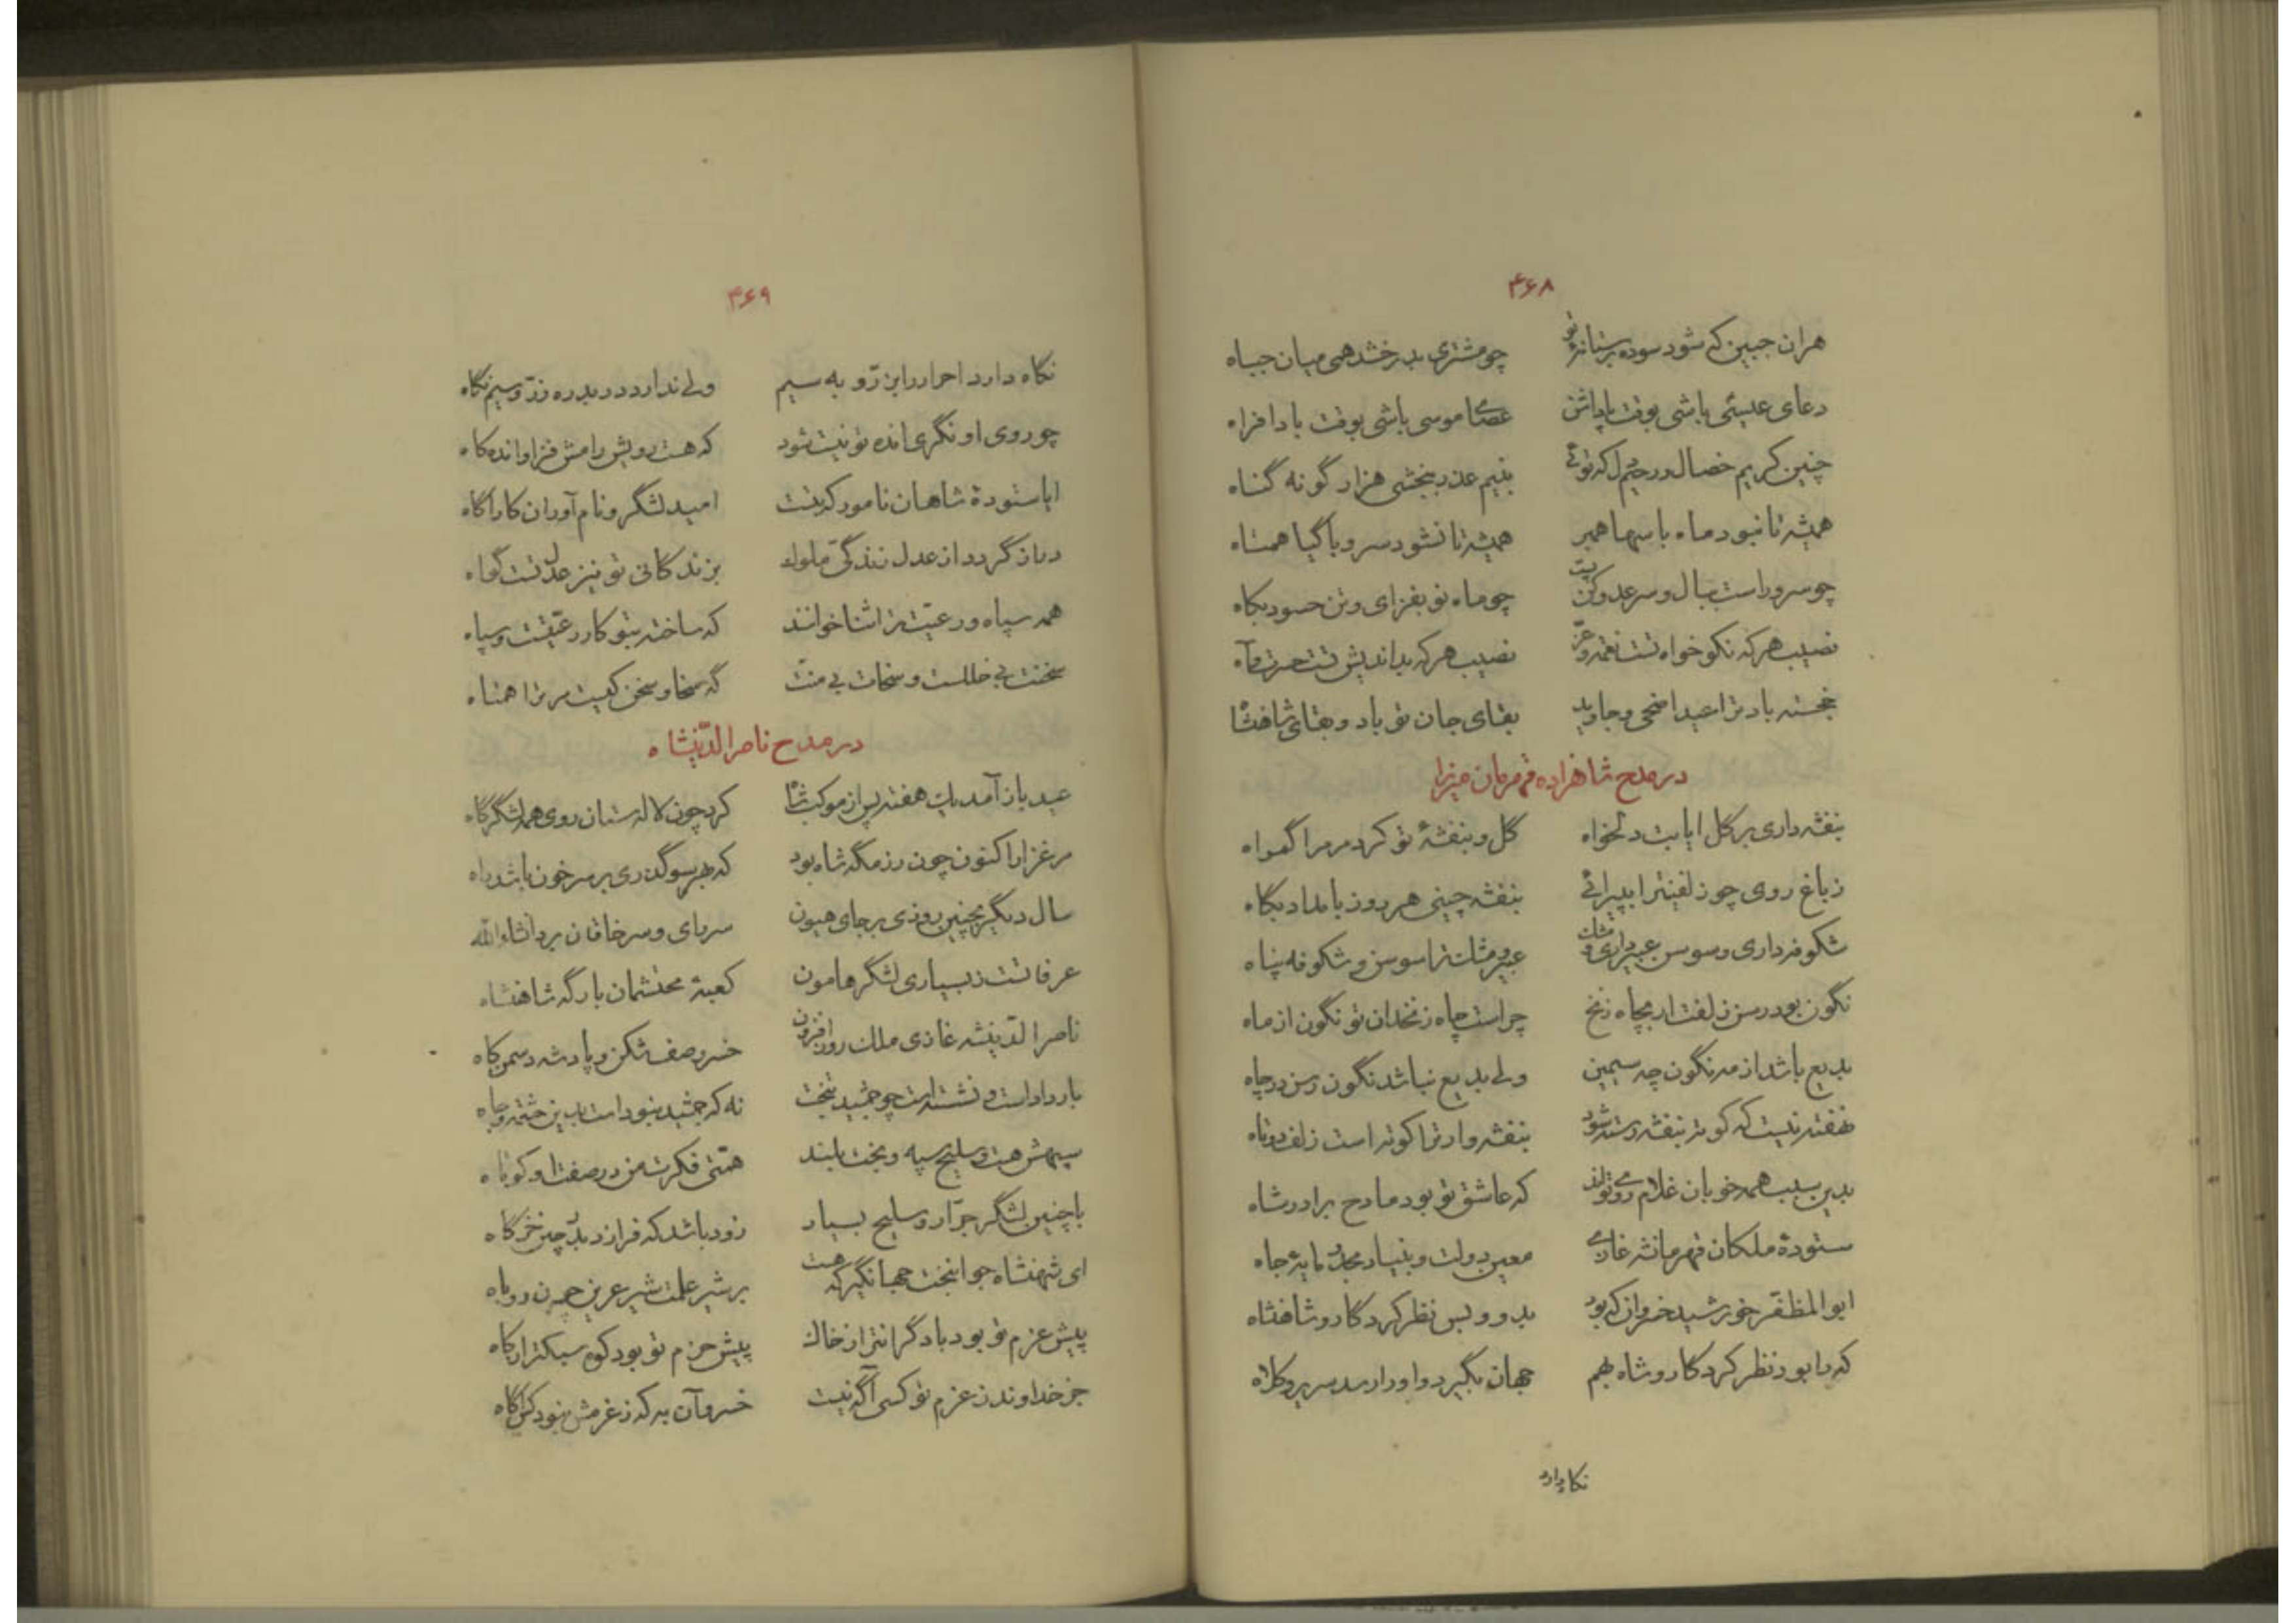 ۴۶۸
هران جبین که شود سوده بر ستانهٔ تو چو مشتری بدرخشد همی میان جباه
دعای عیسی باشی بوقت پاداشن عصای موسی باشی بوقت بادافراه
چنین کریم خصال و رحیم دل که توئی بنیم عذر ببخشی هزار گونه گناه
همیشه تا نبود ماه با سها همبر همیشه تا نشود سرو با گیا همتاه
چو سرو راست ببال و سر عدو کن پست چو ماه نو بفزای و تن حسود بکاه
نصیب هرکه نکو خواه تست نغمه و عز نصیب هرکه بداندیش تست حسرت و آه
خجسته باد ترا عید اضحی و جاوید بقای جان تو باد و بقای شاهنشاه
در مدح شاهزاده قهرمان میرزا
بنفشه داری بر گل ایا بت دلخواه گل و بنفشهٔ تو کرد مر مرا گمراه
ز باغ روی چو زلفینرا بپیرائی بنفشه چینی هر روز بامداد پگاه
شکوفه داری و سوسن عبیر داری و مشک عبیر و مشک ترا سوسن و شکوفه پناه
نگون بود رسن زلفت ار بچاه زنخ چراست چاه زنخدان تو نگون از ماه
بدیع باشد از مه نگون چه سیمین ولی بدیع نباشد نگون رسن در چاه
نهفته نیست که کوته بنفشه رسته شود بنفشه وار ترا کوته است زلف دوتاه
بدین سبب همه خوبان غلام روی تواند که عاشق تو بود مادح برادر شاه
ستودهٔ ملکان قهرمانشه غازی معین دولت و بنیاد مجد و مایهٔ جاه
ابوالمظفر خورشید خسروان که بود بدو و بس نظر کردگار و شاهنشاه
که را بود نظر کردگار و شاه بهم جهان بگیرد و او را رسد سریر و کلاه
نکاه دارد
۴۶۹
نکاه دارد احرار را بزرّ و به سیم ولی ندارد در بدره زرّ و سیم نکاه
چو روی او نگری انده تو نیست شود که هست رویش رامش فزا و انده کاه
ایا ستودهٔ شاهان نامور که بتست امید لشگر و نام آوران کارآگاه
دراز گردد از عدل زندگیّ ملوک بزندگانی تو نیز عدل تست گواه
همه سپاه و رعیت ترا ثنا خوانند که ساخته بتو کار رعیتست و سپاه
سخنت بی خللست و سخات بی منت که سخا و سخن کیست مر ترا همتاه
در مدح ناصرالدّینشاه
عید باز آمد یک هفته پس از موکب شاه کرد چون لاله ستان روی همه لشگرگاه
مرغزار اکنون چون رزمگه شاه بود که بهر سو گذری بر سر خون باشد راه
سال دیگر بچنین روزی بر جای هیون سر رای و سر خاقان برد انشاءالله
عرفاتست ز بسیاری لشگر هامون کعبهٔ محتشمان بارگه شاهنشاه
ناصرالدّینشه غازی ملک روزافزون خسرو صف شکن و پادشه دشمن کاه
بار داد است و نشسته است چو جمشید بتخت نه که جمشید نبود است بدین حشمت و جاه
سپهش هست و سلیح سپه و بخت بلند همتی فکرت من در صفت او کوتاه
با چنین لشگر جرّار و سلیح بسیار زود باشد که فرازد بدر چین خرگاه
ای شهنشاه جوانبخت جهانگیر که هست بر شیر علمت شیر عرین چون روباه
پیش عزم تو بود باد گرانتر از خاک پیش حزم تو بود کوه سبکتر از کاه
جز خداوند ز عزم تو کسی آگه نیست خسرو آن به که ز عزمش نبود کس آگاه